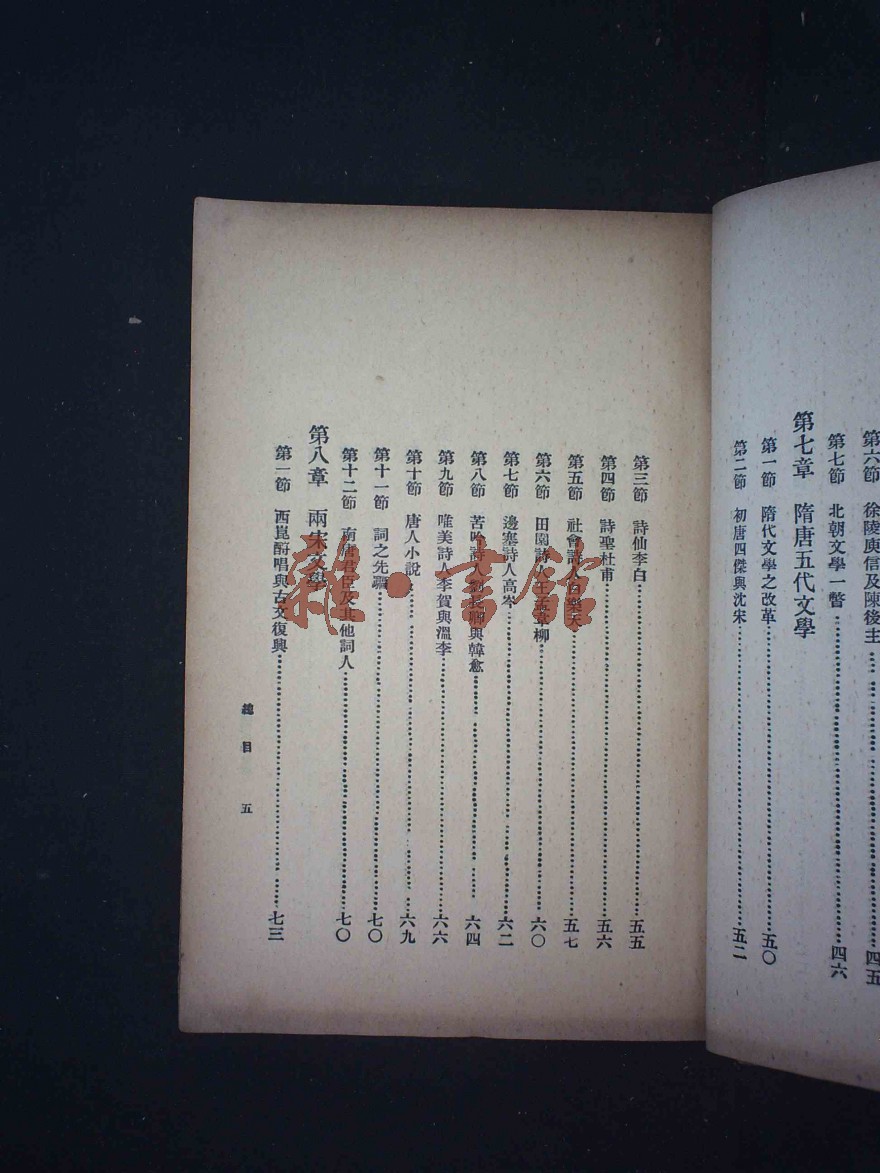 第六節　徐陵庾信及陳後主……四五
第七節　北朝文學一瞥……四六
第七章　隋唐五代文學
第一節　隋代文學之改革……五〇
第二節　初唐四傑與沈宋……五二
第三節　詩仙李白……五五
第四節　詩聖杜甫……五六
第五節　社會詩人白樂天……五七
第六節　田園詩人王孟韋柳……六〇
第七節　邊塞詩人高岑……六二
第八節　苦吟詩人劉長卿與韓愈……六四
第九節　唯美詩人李賀與溫李……六六
第十節　唐人小說……六九
第十一節　詞之先驅……七〇
第十二節　南唐君臣及其他詞人……七〇
第八章　兩宋文學
第一節　西崑酬唱與古文復興……七三
總目　五
雜·書館